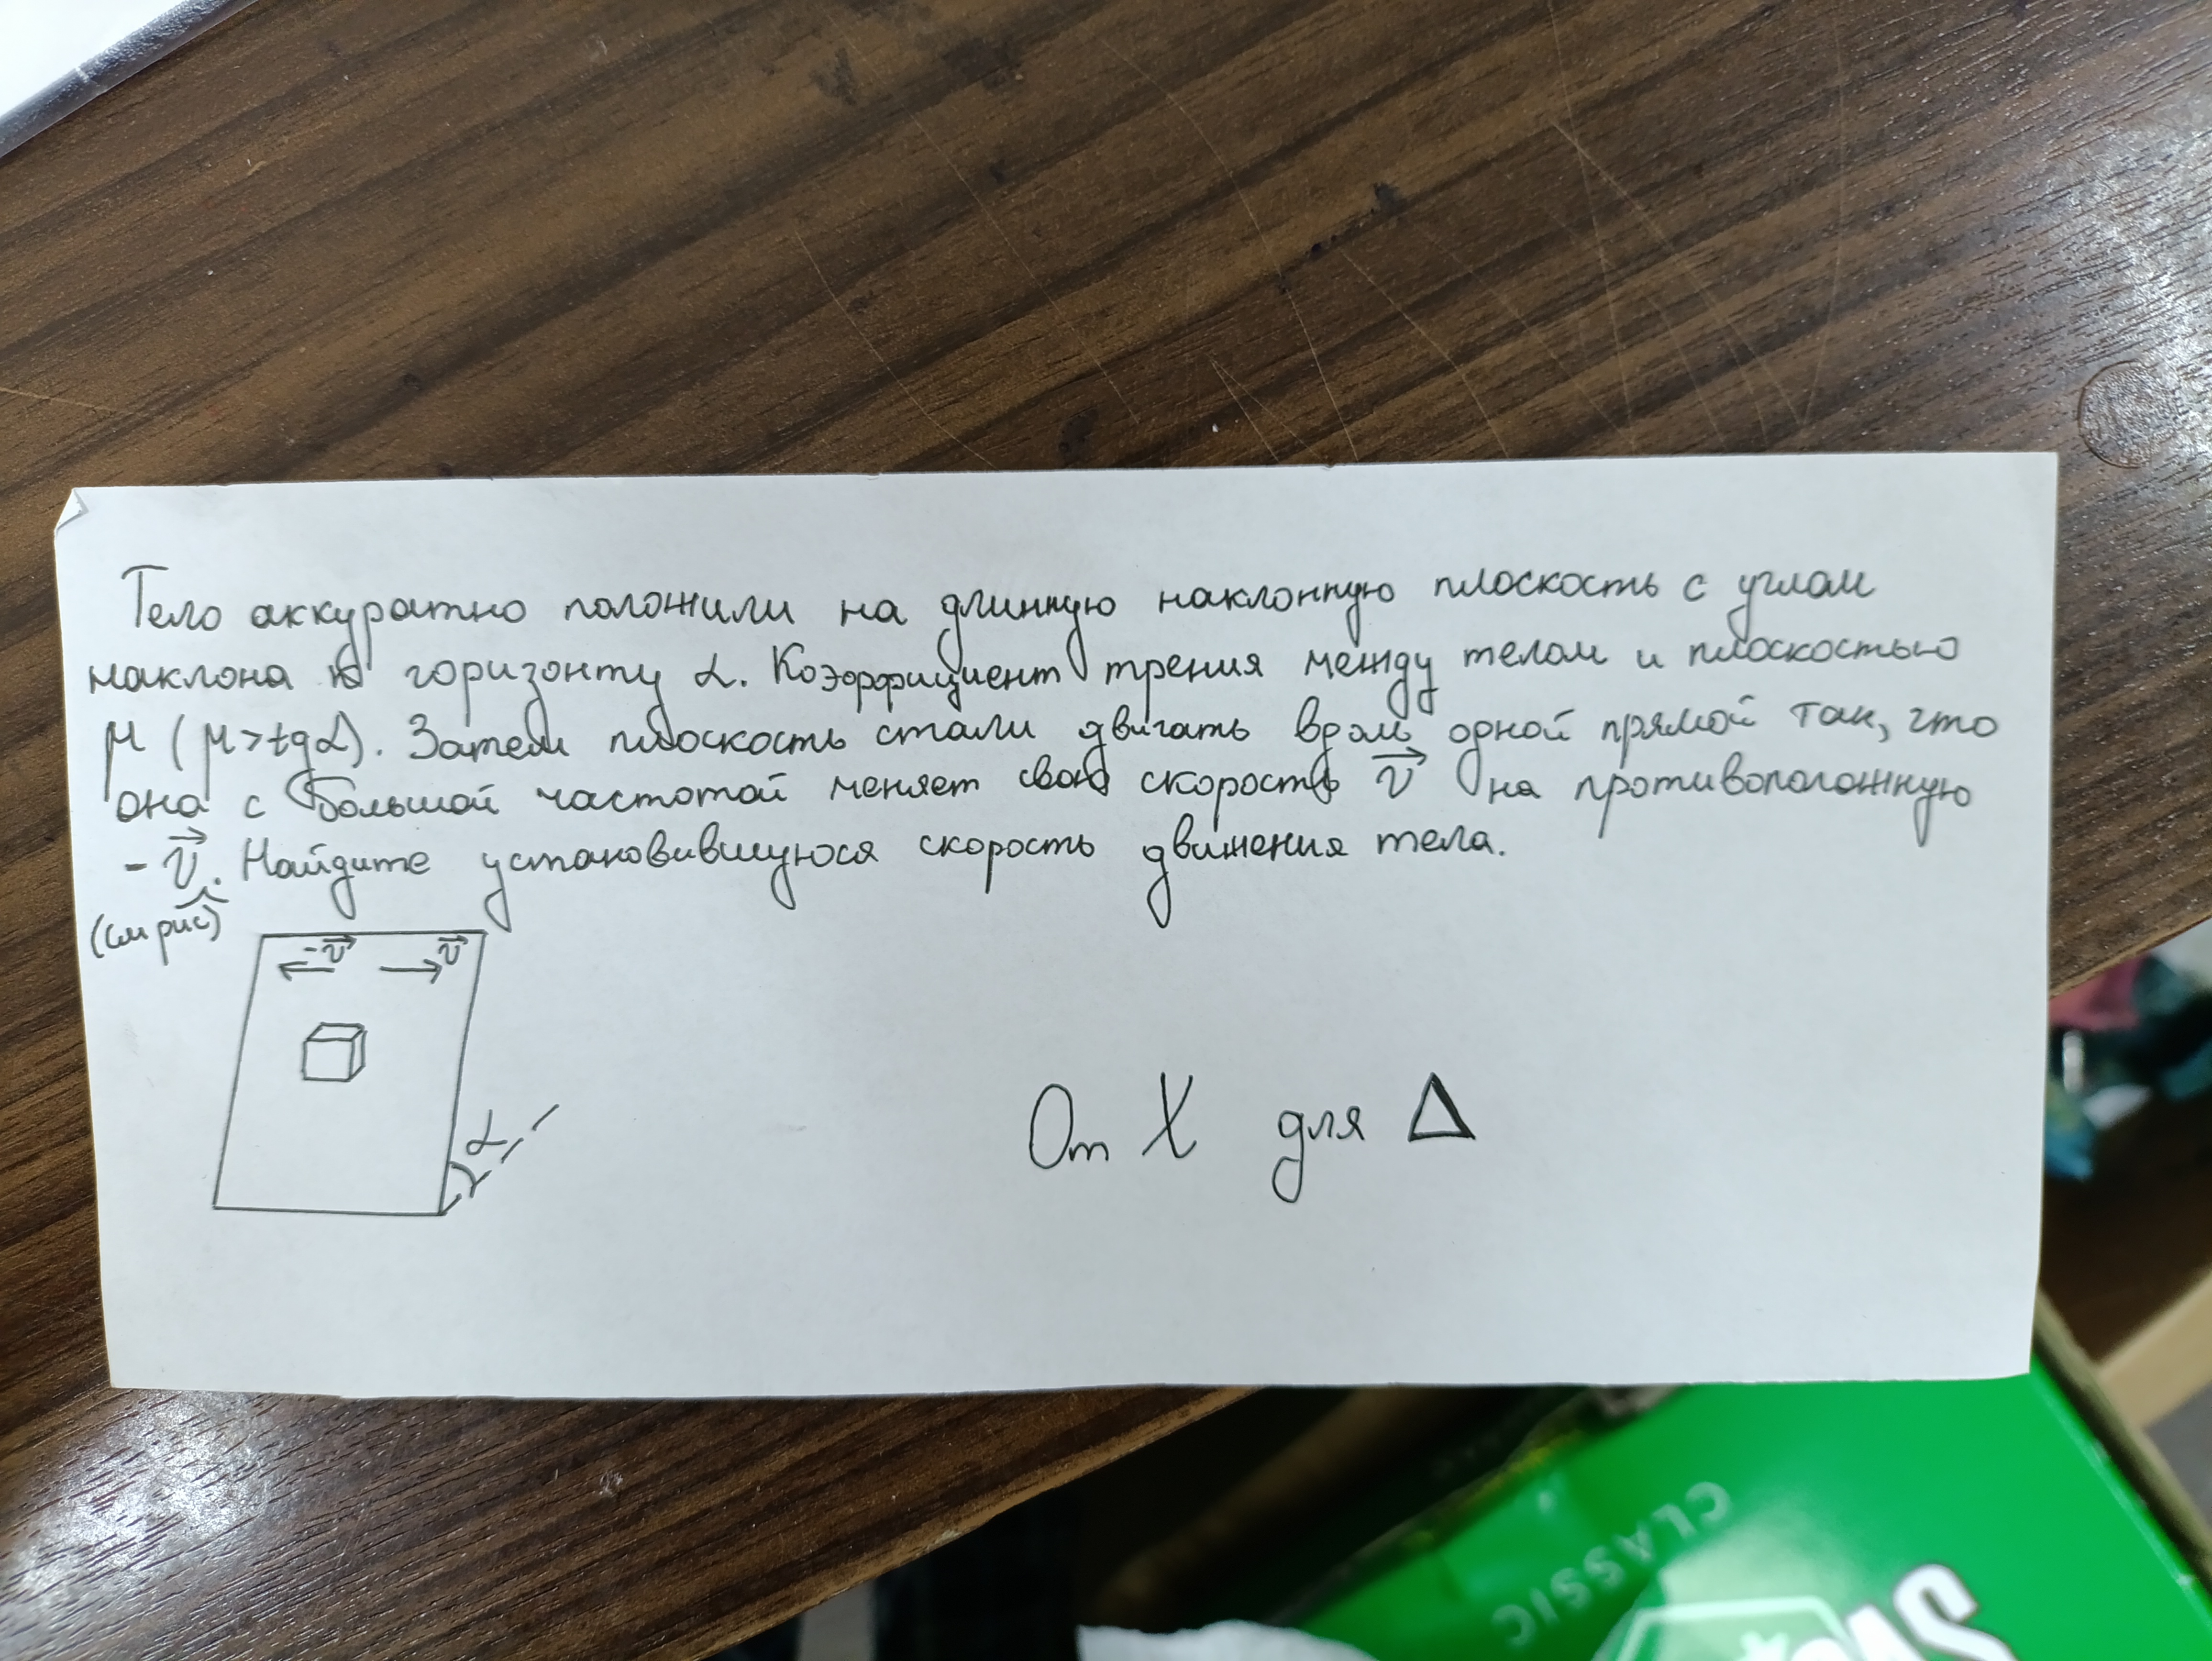 Тело аккуратно положили на длинную наклонную плоскость с углом
наклона к горизонту α. Коэффициент трения между телом и плоскостью
μ (μ>tgα). Затем плоскость стали двигать вдоль одной прямой так, что
она с большой частотой меняет свою скорость v⃗ на противоположную
-v⃗. Найдите установившуюся скорость движения тела.
(см рис)
-v⃗ v⃗
α
От X для Δ
CLASSIC